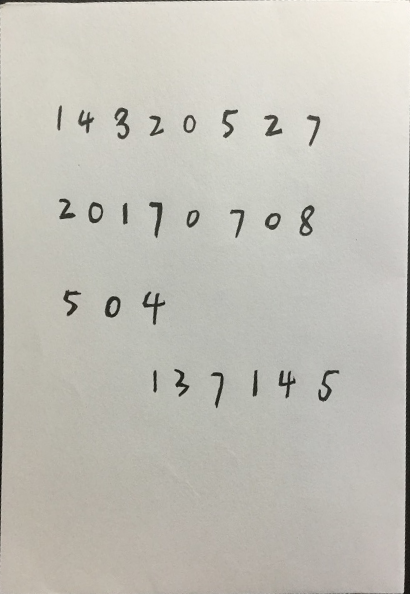 14320527
20170708
504
137145